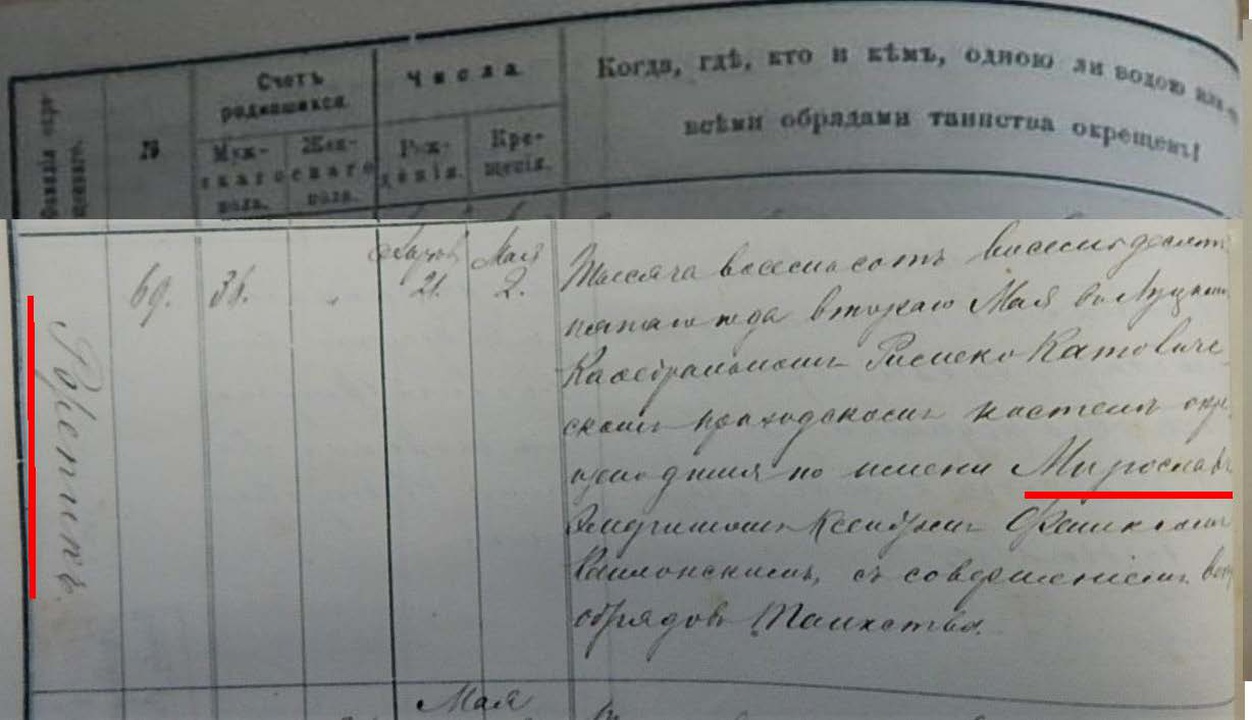 Фамилія окре-
щаемаго.
№
Счетъ
родившихся.
Муж-
скаго
пола.
Жен-
скаго
пола.
Числа
Рож-
денія.
Кре-
щенія.
Когда, гдѣ, кто и кѣмъ, одною ли водою или со
всѣми обрядами таинства окрещенъ?
69.
36.
21.
Мая
2.
Тысяча восемьсотъ восемьдесятъ
пятаго года втораго Мая въ Луцкомъ
Каѳедральномъ Римско Католиче
скомъ приходскомъ костелѣ окре
младенецъ по имени Мирославъ
Ксендзомъ
съ совершеніемъ всѣхъ
обрядовъ Таинства.
Мая